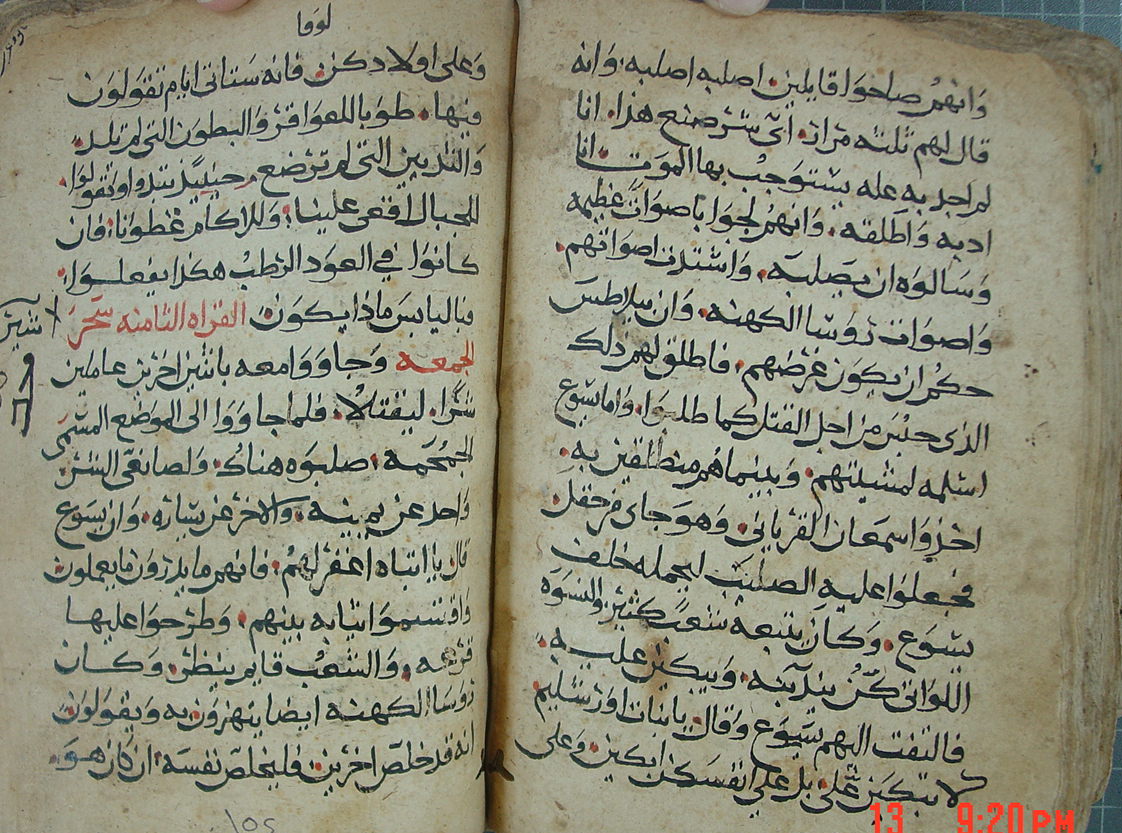 وانهم صاحوا قايلين اصلبه اصلبه، وانه
قال لهم ثلثه مرات. اى شر صنع هذا. انا
لم اجد به عله يستوجب بها الموت. انا
ادبه واطلقه. وانهم لجوا باصوات عظيمه
وسالوه ان يصلبه. واشتدت اصواتهم.
واصوات روسا الكهنه. وان بيلاطس
حكم ان يكون غرضهم. فاطلق لهم ذلك
الذى حبس من اجل القتل كما طلبوا. واما يسوع
اسلمه لمشيتهم. وبينما هم منطلقين به.
اخذوا سمعان القريانى. وهو جاى من حقل.
فجعلوا عليه الصليب ليحمله خلف
يسوع. وكان يتبعه شعب كثير. والنسوه
اللواتى كن يندبنه. ويبكين عليه.
فالتفت اليهم يسوع وقال. يا بنات اورشليم
لا تبكين على. بل على انفسكن ابكين. وعلى
لوقا
وعلى اولادكن. فانه ستاتى ايام تقولون
فيها. طوبا للعواقر والبطون التى لم تلد.
والثديين التى لم ترضع. حينيذ يبتدوا وتقولوا.
للجبال اقعى علينا. وللاكام غطونا. فان
كانوا فى العود الرطب هكذا يفعلوا.
فباليابس ماذا يكون. القراه الثامنه سحر
الجمعه وجاووا معه باثنين اخرين عاملين
شرا. ليقتلا. فلما جاووا الى الموضع المسمى
الجمجمه. صلبوه هناك. ولصا بقى الشر.
واحد عن يمينه. والاخر عن يساره. وان يسوع
قال يا ابتاه اغفر لهم. فانهم ما يدرون ما يعملون
واقتسموا ثيابه بينهم. وطرحوا عليها
قرعه. والشعب قايم ينظر. وكان
روسا الكهنه ايضا يتهزون به ويقولون
انه قد خلص اخرين. فليخلص نفسه. ان كان هو.
13 9:20 PM